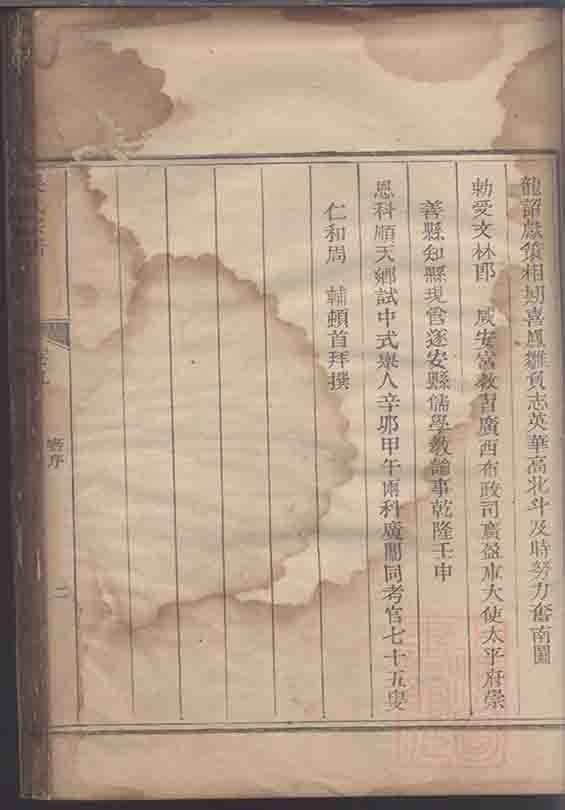 龍韶獻策相期喜鳳雛負志英華高北斗及時努力奮南圖
勅受文林郎　咸安宮教習廣西布政司廣盈庫大使太平府崇
善縣知縣現官遂安縣儒學教諭事乾隆壬申
恩科順天鄉試中式舉人辛卯甲午兩科廣闈同考官七十五叟
仁和周　輔頓首拜撰
壽序
二